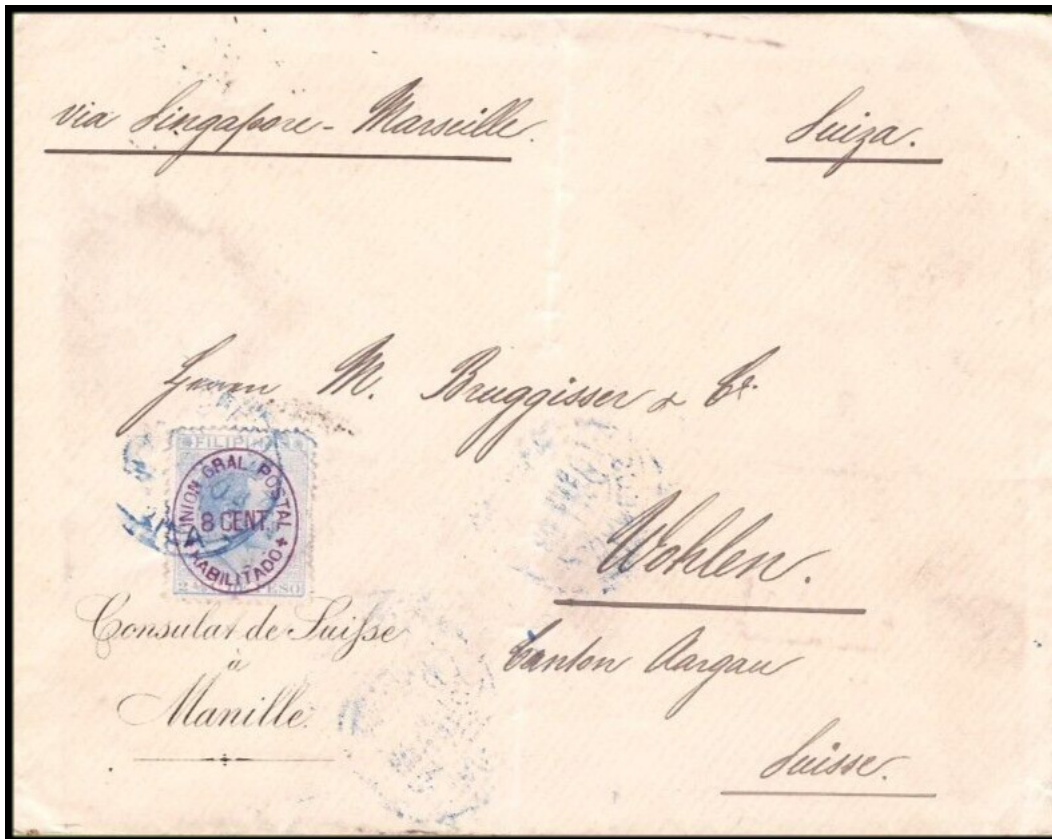 via Singapore - Marseille.
Suiza.
Herrn M. Bruggisser & Cº.
FILIPINAS
UNION GRAL POSTAL
8 CENT.
+ HABILITADO +
PESO
Wohlen.
Canton Aargau
Suisse.
Consulat de Suisse
à
Manille.